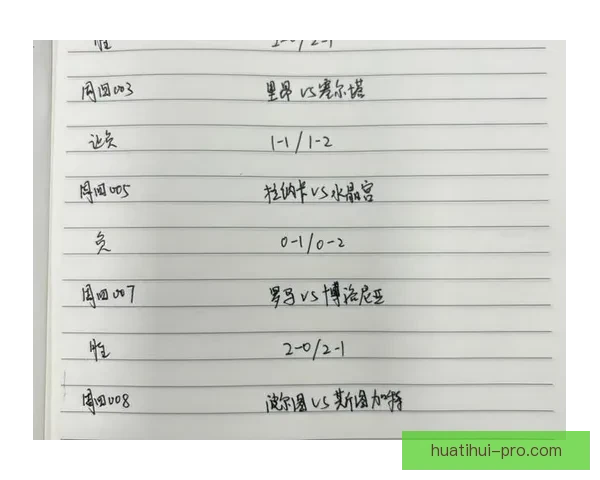 胜 1-0/2-1
周四003 里昂 VS 塞尔塔
让负 1-1/1-2
周四005 拉纳卡 VS 水晶宫
负 0-1/0-2
周四007 罗马 VS 博洛尼亚
胜 2-0/2-1
周四008 波尔图 VS 斯图加特
huatihui-pro.com